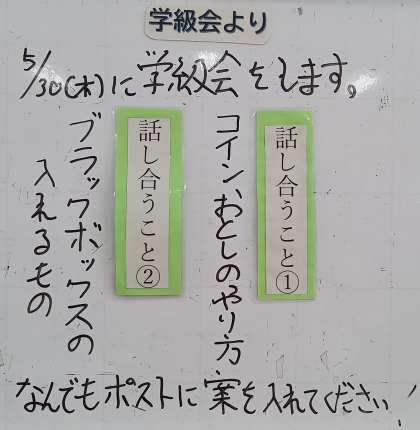 学級会より
5/30(木)に学級会をします。
話し合うこと①
コインおとしのやり方
話し合うこと②
ブラックボックスの
入れるもの
なんでもポストに案を入れてください!